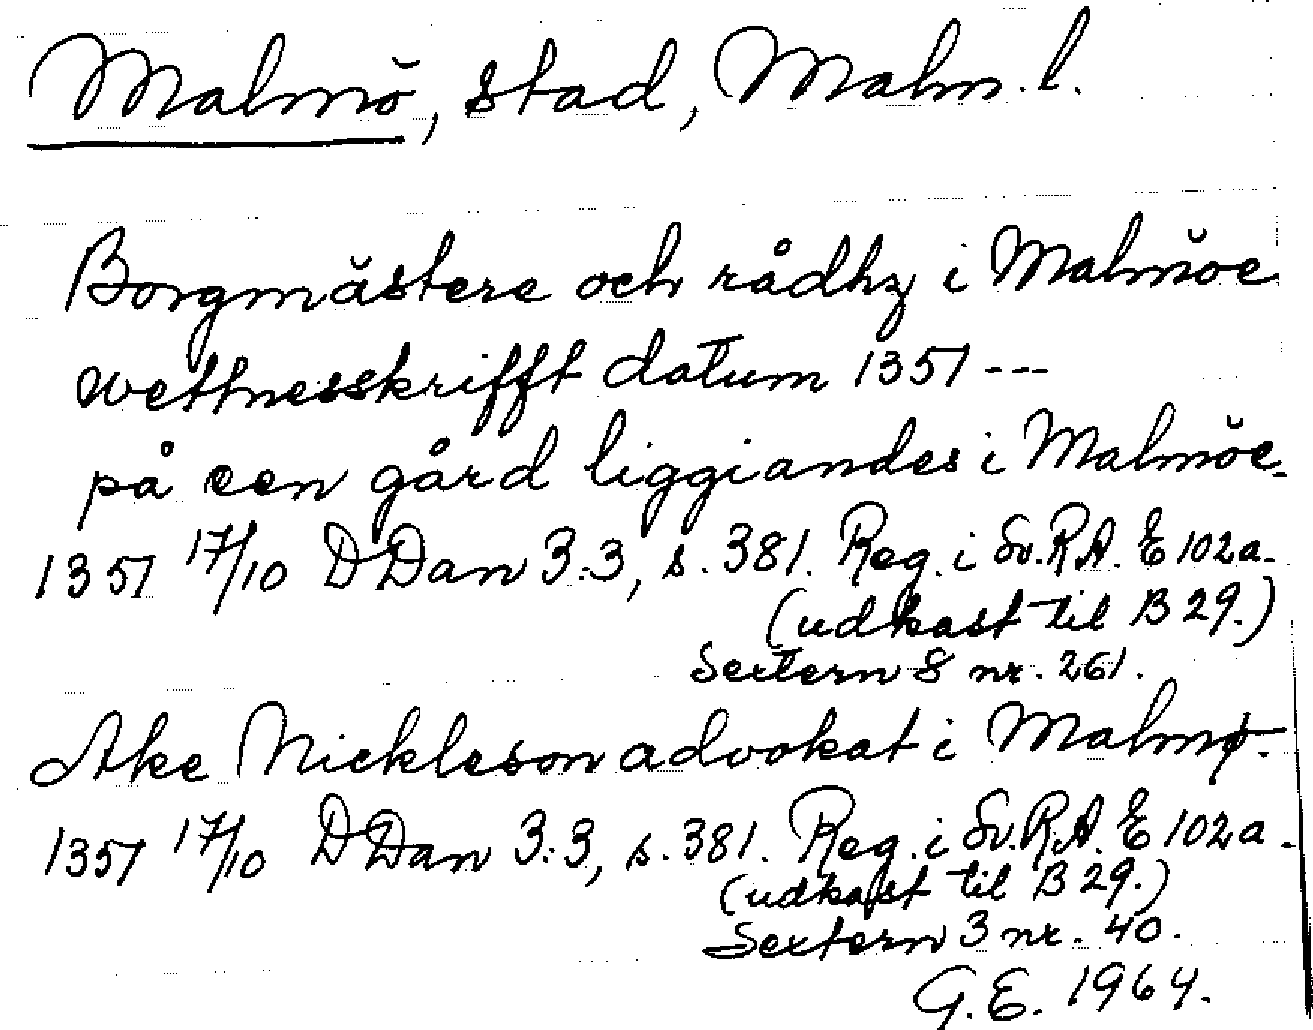 Malmö, stad, Malm. l.
Borgmästere och rådhz i Malmöe
wettnesskrifft datum 1351 ---
på een gård liggiandes i Malmöe.
1351 17/10 DDan 3:3, s. 381. Reg. i Sv.R.A. E 102a.
(udkast til B 29.)
Sextern 8 nr. 261.
Ake Nickleson advokat i Malmø.
1351 17/10 DDan 3:3, s. 381. Reg. i Sv.R.A. E 102a.
(udkast til B 29.)
Sextern 3 nr. 40.
G.E. 1964.